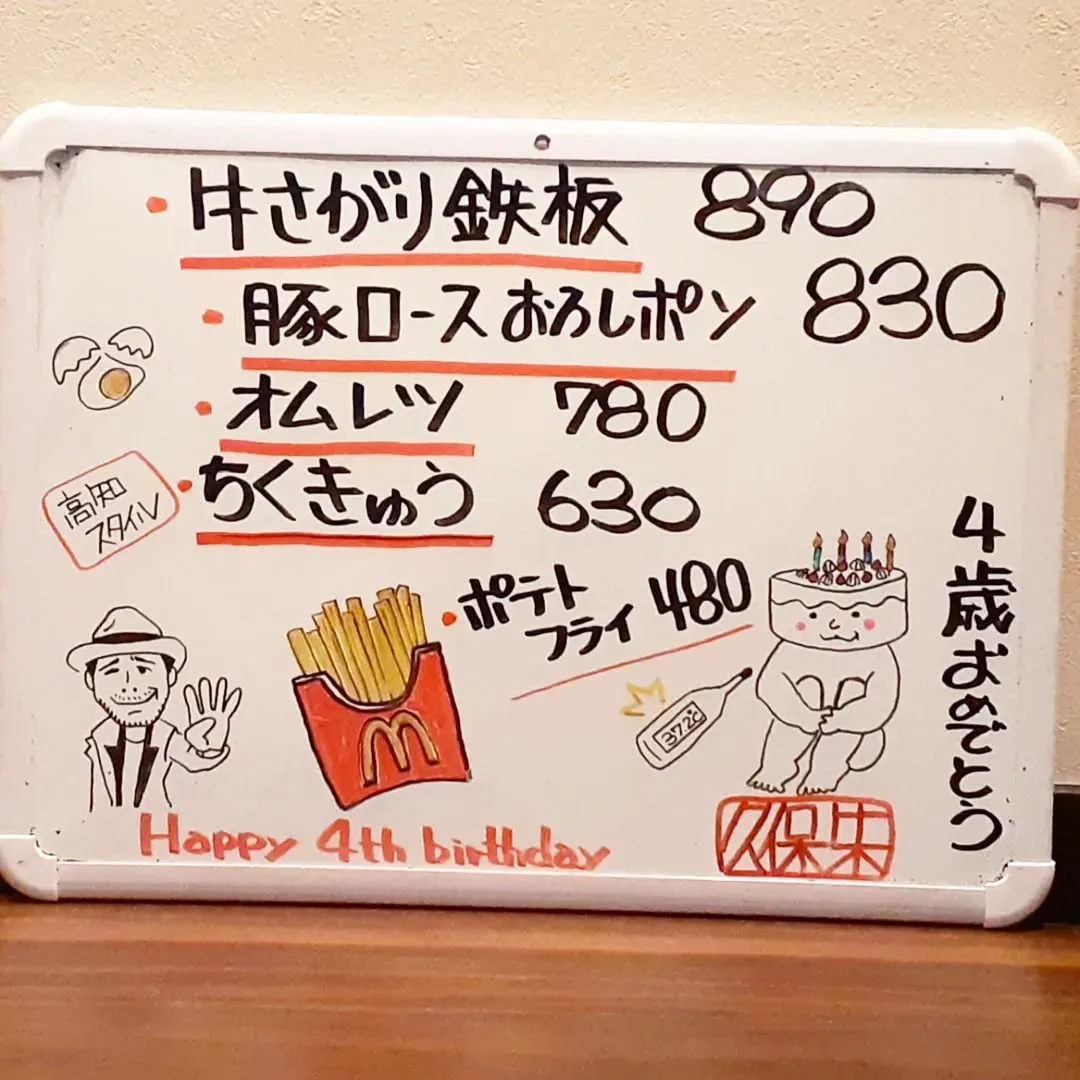 ・牛さがり鉄板 890
・豚ロースおろしポン 830
・オムレツ 780
高知
スタイル
・ちくきゅう 630
・ポテト
フライ 480
M
37.2℃
4歳おめでとう
Happy 4th birthday
久保